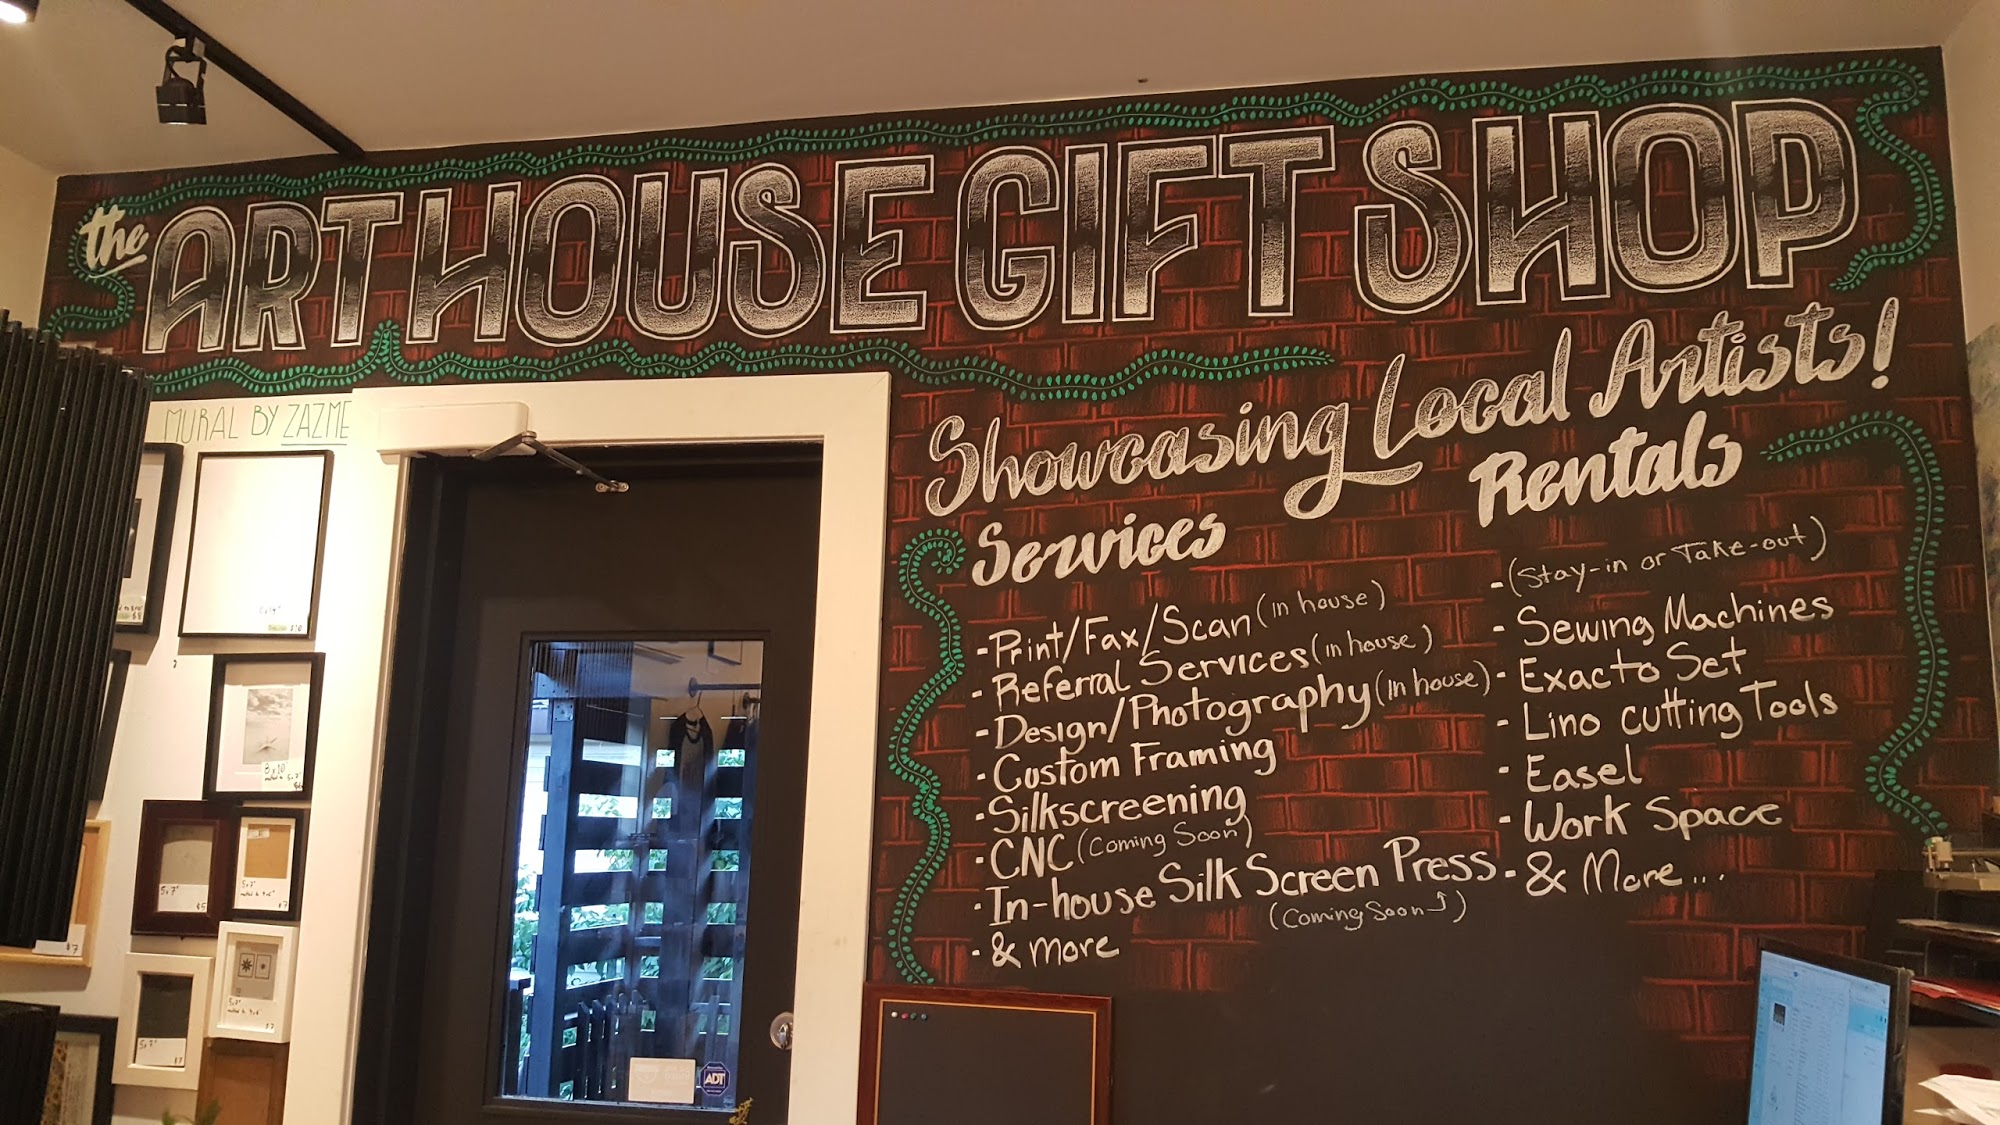 the ART HOUSE GIFT SHOP
Showcasing Local Artists!
MURAL BY ZAZME
Services
- Print/Fax/Scan (in house)
- Referral Services (in house)
- Design/Photography (in house)
- Custom Framing
- Silkscreening
- CNC (Coming Soon)
- In-house Silk Screen Press
(Coming Soon)
- & more
Rentals
- (Stay-in or Take-out)
- Sewing Machines
- Exacto Set
- Lino cutting Tools
- Easel
- Work Space
- & More...
8x10"
5x7"
$5
5x7"
$7
5x7"
$7
5x7"
$7
ADT